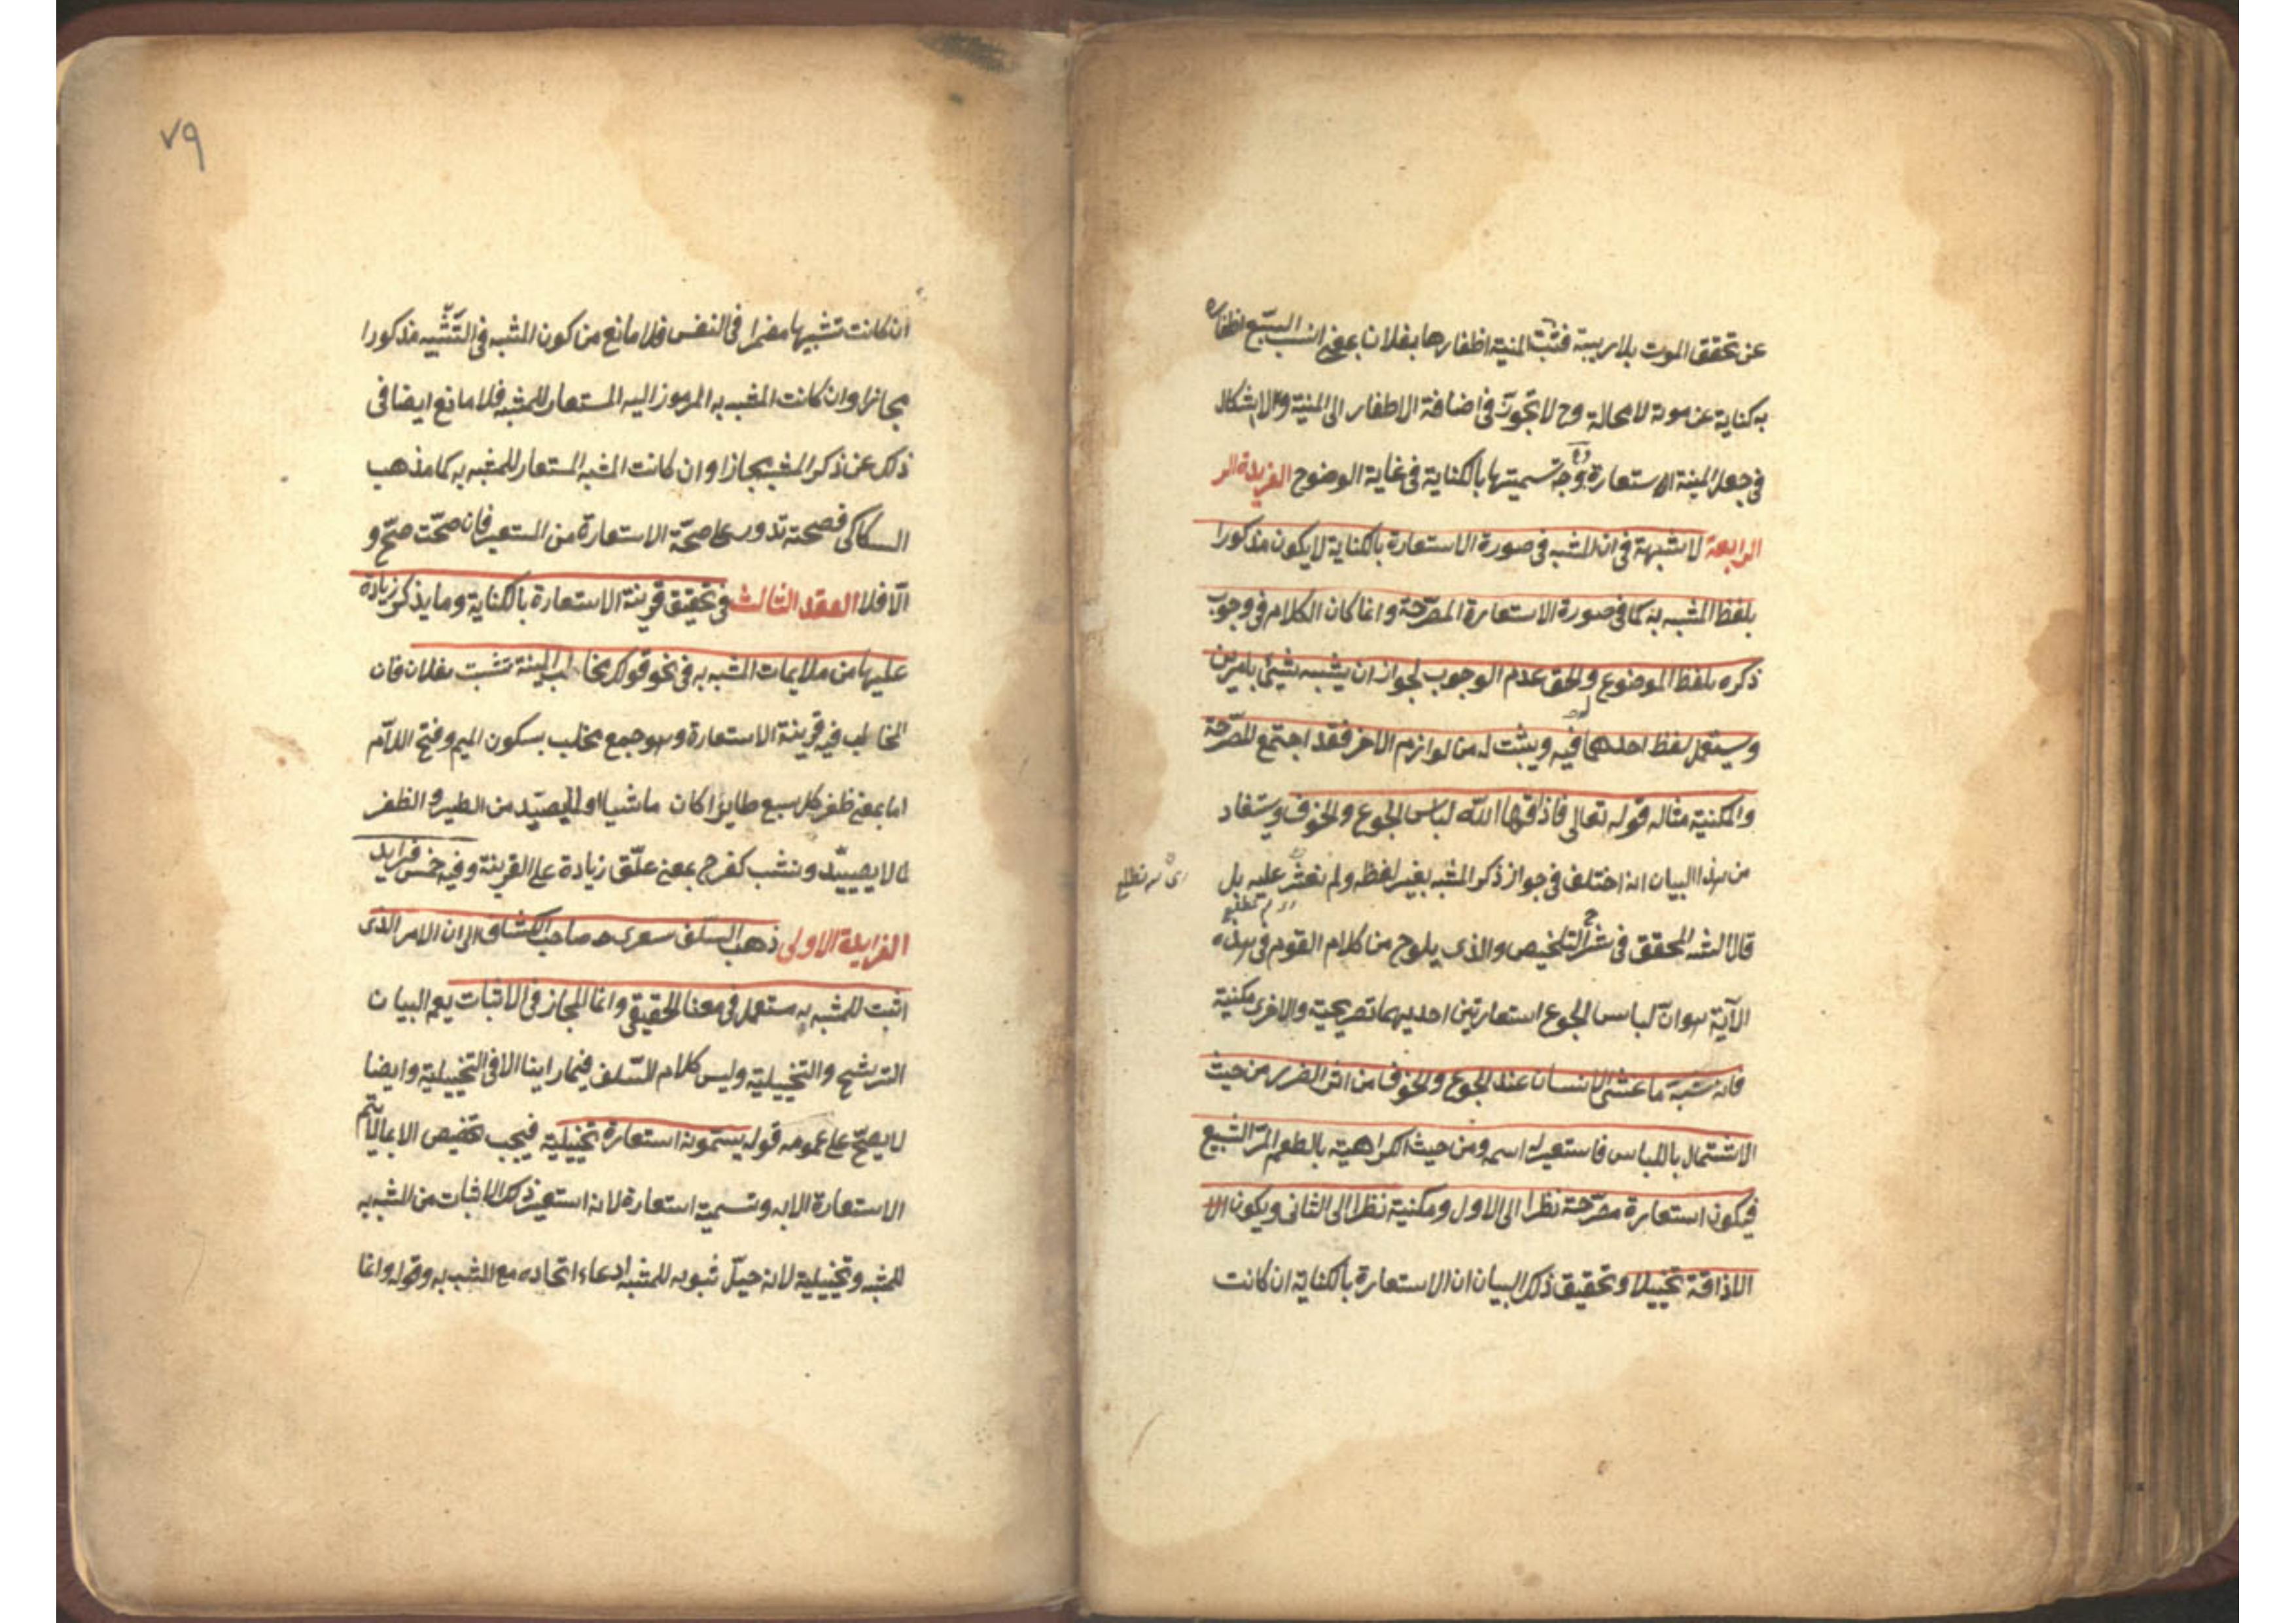 عن تحقق الموت بلا ريبة فتثبت المنية اظفارها بفلان بمعنى انشب السبع اظفاره
به كناية عن موته لا محالة وح لا تجوّز في اضافة الاظفار الى المنية ولا اشكال
في جعل المنية استعارة ووجه تسميتها بالكناية في غاية الوضوح الفريدة الر
الرابعة لا شبهة في ان المشبه في صورة الاستعارة بالكناية لا يكون مذكورا
بلفظ المشبه به كما في صورة الاستعارة المصرّحة وانما كان الكلام في وجوب
ذكره بلفظ الموضوع والحق عدم الوجوب لجواز ان يشبه شيئ بامرين
ويستعمل لفظ احدهما فيه ويثبت له من لوازم الاخر فقد اجتمع المصرّحة
والمكنية مثاله قوله تعالى فاذاقها الله لباس الجوع والخوف ويستفاد
من هذا البيان انه اختلف في جواز ذكر المشبه بغير لفظه ولم نعثر عليه بل
اى لم نطلع
قال الشه المحقق في شرح التلخيص والذى يلوح من كلام القوم في هذه
الآية هو انّ لباس الجوع استعارتين احديهما تصريحية والاخرى مكنية
فانه شبّه ما غشى الانسان عند الجوع والخوف من اثر الضرر من حيث
الاشتمال باللباس فاستعير له اسمه ومن حيث الكراهية بالطعم المرّ البشع
فيكون استعارة مصرّحة نظرا الى الاول ومكنية نظرا الى الثانى ويكون الا
الاذاقة تخييلا وتحقيق ذلك البيان ان الاستعارة بالكناية ان كانت
٧٩
ان كانت تشبيها مضمرا في النفس فلا مانع من كون المشبه في التشبيه مذكورا
مجازا وان كانت المشبه به المرموز اليه المستعار للمشبه فلا مانع ايضا في
ذلك عن ذكر المشبه مجازا وان كانت المشبه المستعار للمشبه به كما مذهب
السكاكى فصحته تدور على صحّة الاستعارة من المستعير فان صحّت صحّ و
الّا فلا العقد الثالث في تحقيق قرينة الاستعارة بالكناية وما يذكر زيادة
عليها من ملايمات المشبه به في نحو قولك مخالب المنية نشبت بفلان فان
المخالب فيه قرينة الاستعارة وهو جمع مخلب بسكون الميم وفتح اللام
اما بمعنى ظفر كل سبع طايرا كان ماشيا او لما يصيد من الطير والظفر
لما لا يصيد ونشب كفرح بمعنى علّق زيادة على القرينة وفيه خمس فرايد
الفرايدة الاولى ذهب السلف سوى صاحب الكشاف الى ان الامر الذى
اثبت للمشبه به مستعمل في معناه الحقيقي وانما المجاز في الاثبات يعم البيان
الترشيح والتخييلية وليس كلام السلف فيما راينا الا في التخييلية وايضا
لا يصحّ على عمومه قوله يسمّونه استعارة تخييلية فيجب تخصيص الا بما لا يتم
الاستعارة الا به وتسميته استعارة لانه استعير ذلك الاثبات من المشبه به
للمشبه وتخييلية لانه خيّل ثبوته للمشبه ادعاء اتحاده مع المشبه به وقوله وانما